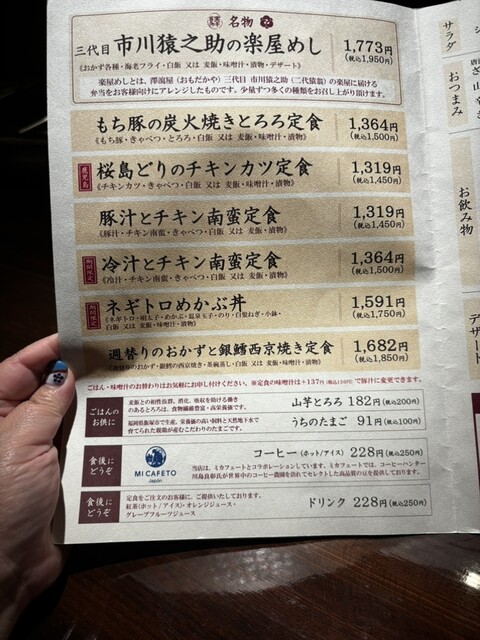 名物
三代目 市川猿之助の楽屋めし 1,773円
(税込1,950円)
《おかず各種・海老フライ・白飯 又は 麦飯・味噌汁・漬物・デザート》
楽屋めしとは、澤瀉屋(おもだかや)三代目 市川猿之助(二代猿翁)の楽屋に届ける
弁当をお客様向けにアレンジしたものです。少量ずつ多くの種類をお召し上がり頂けます。
もち豚の炭火焼きとろろ定食 1,364円
《もち豚・きゃべつ・とろろ・白飯 又は 麦飯・味噌汁・漬物》 (税込1,500円)
鹿児島 桜島どりのチキンカツ定食 1,319円
《チキンカツ・きゃべつ・白飯 又は 麦飯・味噌汁・漬物》 (税込1,450円)
豚汁とチキン南蛮定食 1,319円
《豚汁・チキン南蛮・きゃべつ・白飯 又は 麦飯・漬物》 (税込1,450円)
期間限定 冷汁とチキン南蛮定食 1,364円
《冷汁・チキン南蛮・きゃべつ・白飯 又は 麦飯・漬物》 (税込1,500円)
期間限定 ネギトロめかぶ丼 1,591円
《ネギトロ・明太子・めかぶ・温泉玉子・のり・白髪ねぎ・小鉢・
白飯 又は 麦飯・味噌汁・漬物》 (税込1,750円)
週替りのおかずと銀鱈西京焼き定食 1,682円
《週替りのおかず・銀鱈の西京焼き・茶碗蒸し・白飯 又は 麦飯・味噌汁・漬物》 (税込1,850円)
ごはん・味噌汁のお替わりはお気軽にお申し付けください。※定食の味噌汁は+137円(税込150円)で豚汁に変更できます。
ごはんの
お供に
麦飯との相性抜群。消化、吸収を助ける働き
のあるとろろは、食物繊維豊富・高栄養価です。
山芋とろろ 182円(税込200円)
福岡県飯塚市で生産。栄養価の高い飼料と天然地下水で
育てられた親鶏が産むこだわりのたまごです。
うちのたまご 91円(税込100円)
食後に
どうぞ
MI CAFETO
Japan
コーヒー(ホット/アイス) 228円(税込250円)
当店は、ミカフェートとコラボレーションしています。ミカフェートでは、コーヒーハンター
川島良彰氏が世界中のコーヒー農園を訪れてセレクトした高品質の豆を提供しております。
食後に
どうぞ
定食をご注文のお客様に、ご提供いたしております。
紅茶(ホット/アイス)・オレンジジュース・
グレープフルーツジュース
ドリンク 228円(税込250円)
サラダ
おつまみ
お飲み物
デザート